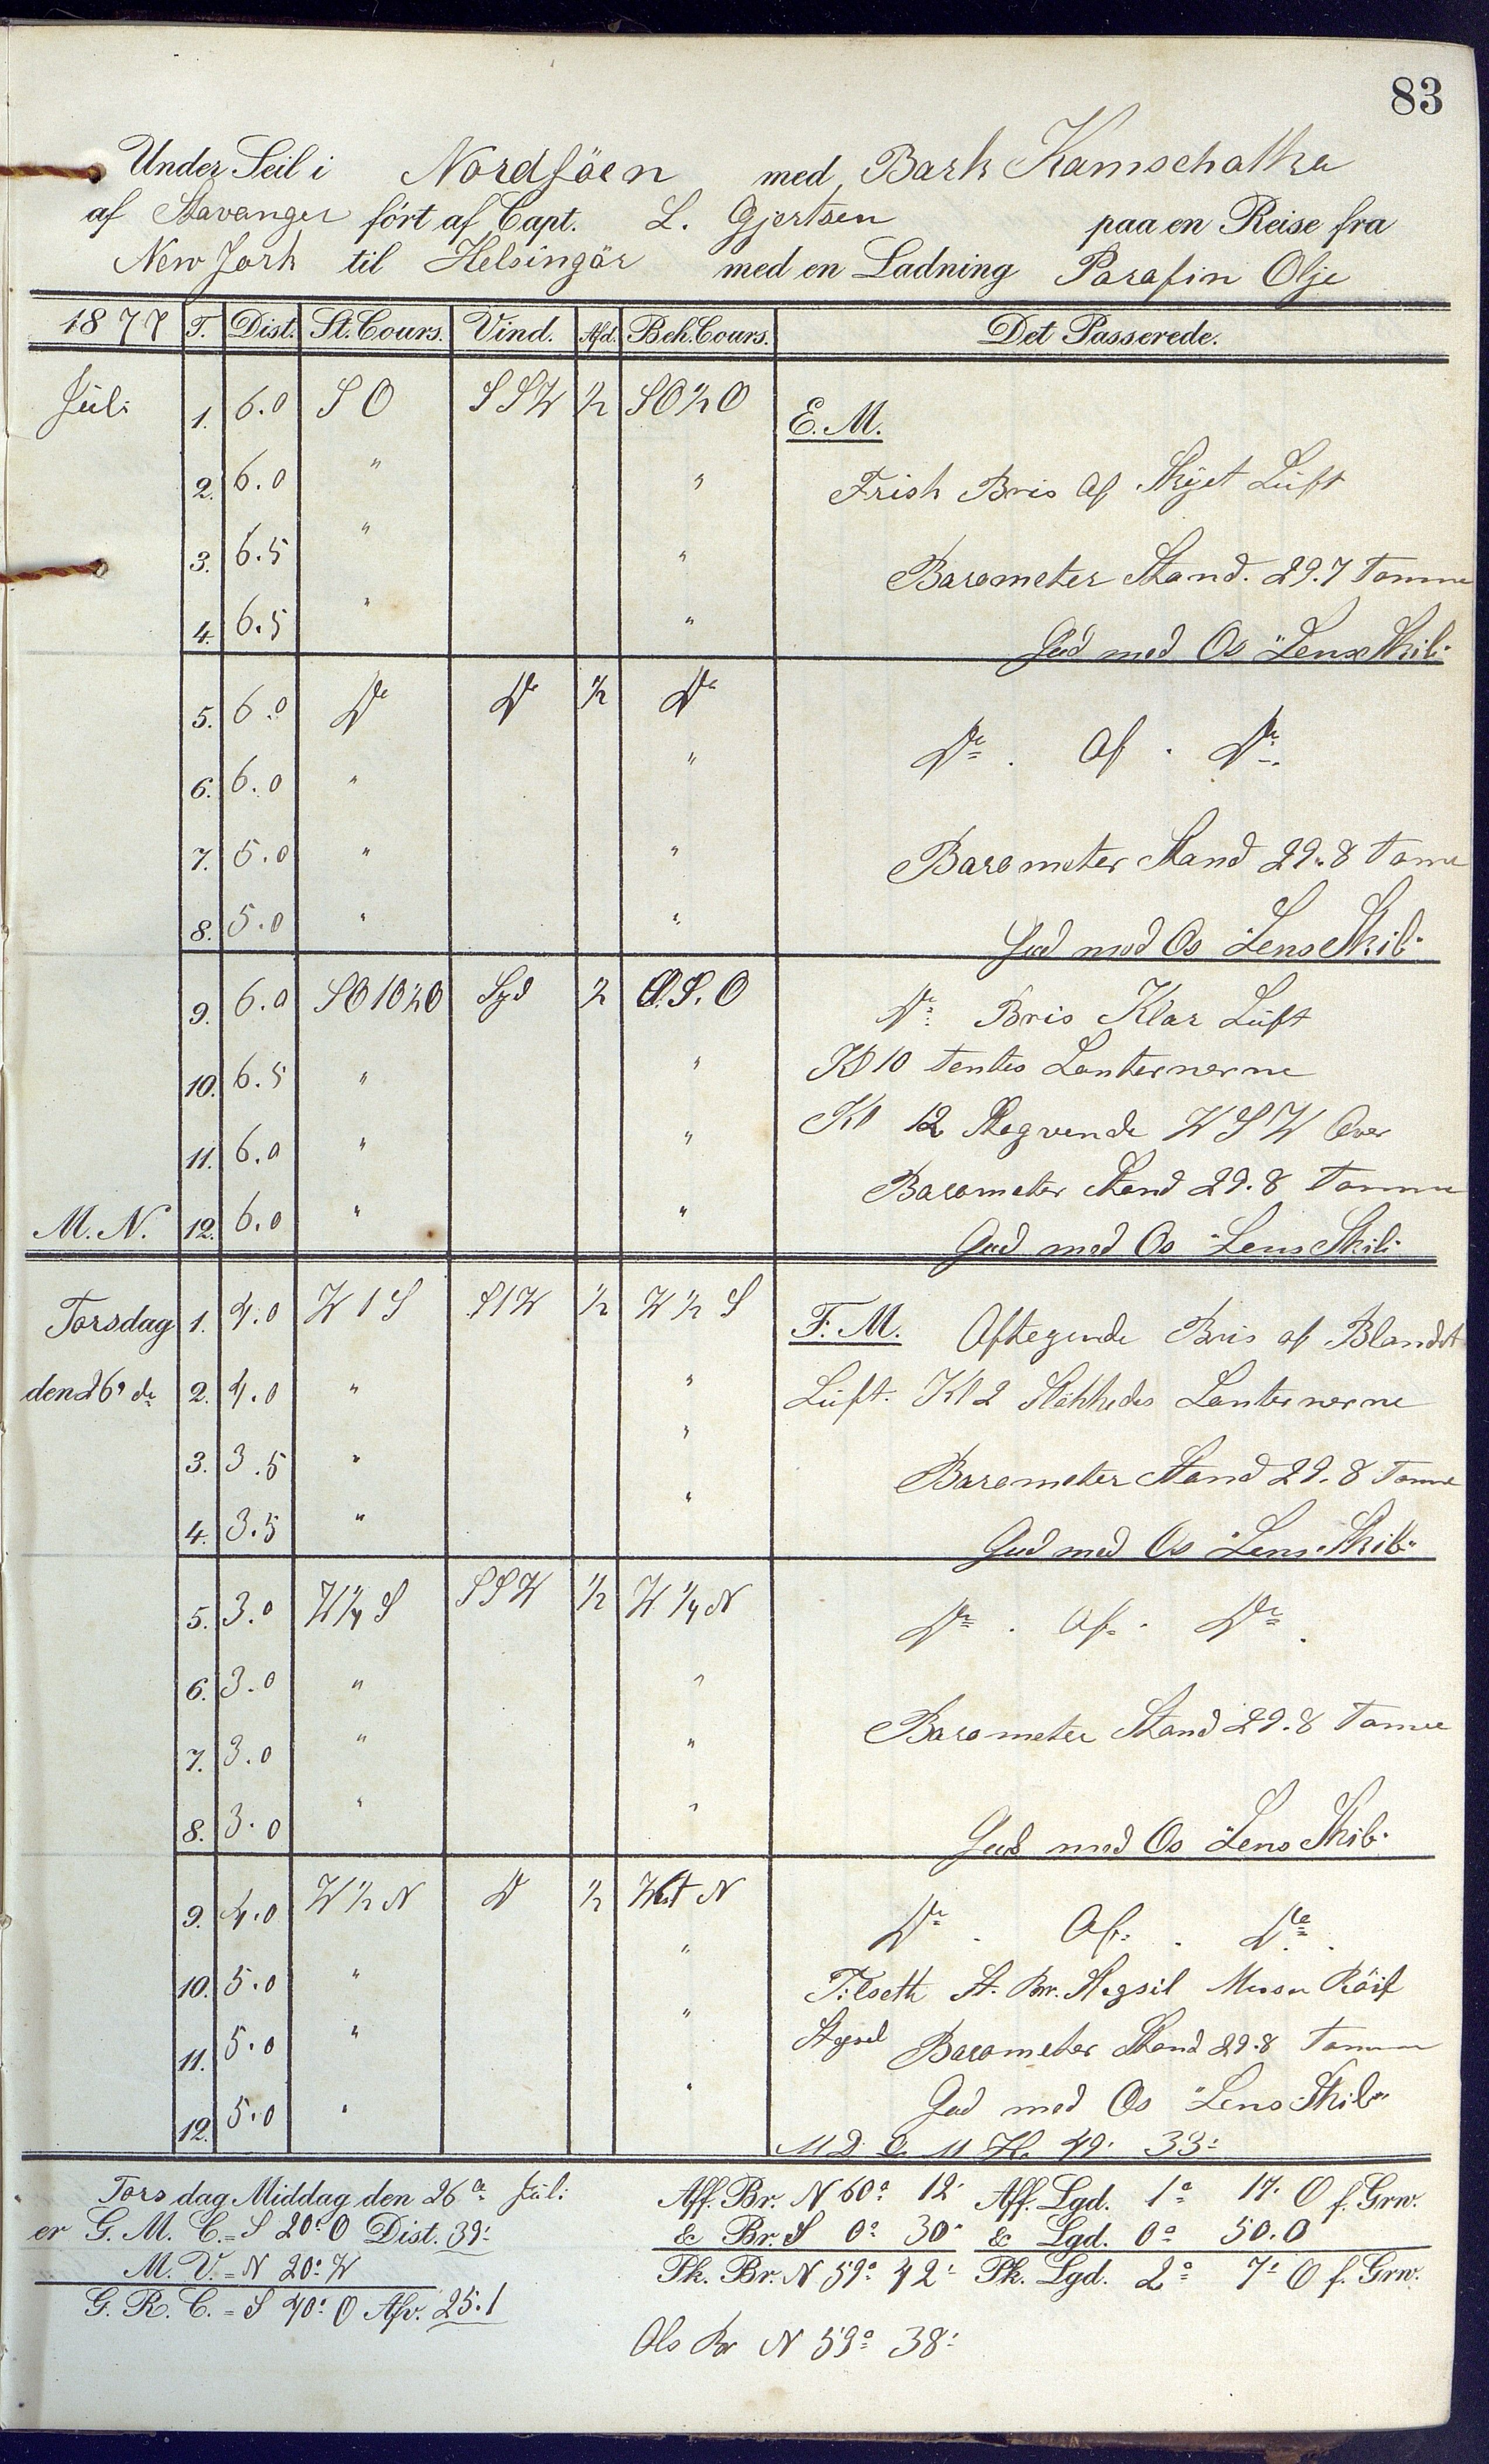 83
Under Seil i Nordsöen med Bark Kamschatka
af Stavanger fört af Capt. L. Gjertsen paa en Reise fra
New Jork til Helsingör med en Ladning Parafin Olje
1877 T. Dist. St. Cours. Vind. Afd. Beh. Cours. Det Passerede.
Juli 1. 6.0 S O S S W ½ SO ½ O E. M.
2. 6.0 " " Frisk Bris af Skyet Luft
3. 6.5 " " Barometer Stand. 29.7 Tomme
4. 6.5 " " Gud med Os "Lens Skib"
5. 6.0 Do Do ½ Do Do . Af . Do
6. 6.0 " "
7. 5.0 " " Barometer Stand 29.8 Tome
8. 5.0 " " Gud med Os "Lens Skib"
9. 6.0 SO 1 O ½ O Syd ½ O.S.O Do Bris Klar Luft
10. 6.5 " " Kl 10 tentes Lanternerne
11. 6.0 " " Kl 12 Stagvende W S W Over
Barometer Stand 29.8 Tomme
M. N. 12. 6.0 " " Gud med Os "Lens Skib"
Torsdag 1. 4.0 W 1 S S 1 W ½ W ½ S F. M. Aftagende Bris af Blandet
den 26de 2. 4.0 " " Luft. Kl 2 Slökkedes Lanternerne
3. 3.5 " " Barometer Stand 29.8 Tomme
4. 3.5 " " Gud med Os "Lens Skib"
5. 3.0 W ¼ S S S W ½ W ¼ N Do . Af . Do
6. 3.0 " "
7. 3.0 " " Barometer Stand 29.8 Tomme
8. 3.0 " " Gud med Os "Lens Skib"
9. 4.0 W ½ N Do ½ W t N Do . Af . Do
10. 5.0 " " Tilsette St. Br. Stagsil Mesan Röil
11. 5.0 " " Stagseil Barometer Stand 29.8 Tomme
12. 5.0 " " Gud med Os "Lens Skib"
49. 33
Torsdag Middag den 26de Juli Aff. Br. N 60° 12' Aff. Lgd. 1° 17' O f. Grw.
er G. M. C. = S 20° O Dist. 39' & Br. S 0° 30' & Lgd. 0° 50. O
M. V. = N 20° W Pk. Br. N 59° 42' Pk. Lgd. 2° 7' O f. Grw.
G. R. C. = S 40° O Afv. 25.1
Obs Br N 59° 38'